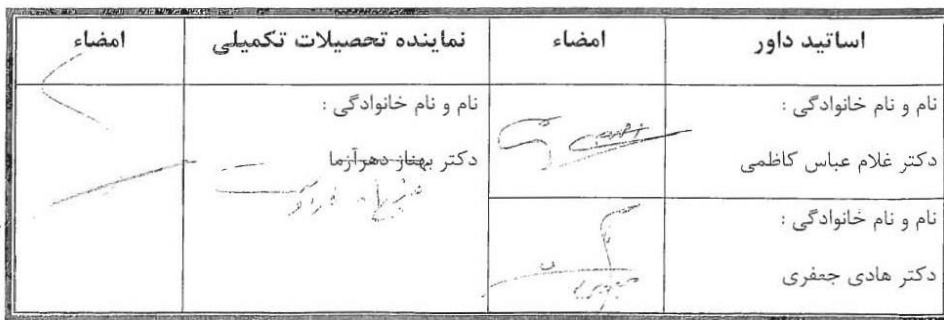 اساتید داور
امضاء
نماینده تحصیلات تکمیلی
امضاء
نام و نام خانوادگی :
دکتر غلام عباس کاظمی
نام و نام خانوادگی :
دکتر بهناز دهرآزما
نام و نام خانوادگی :
دکتر هادی جعفری